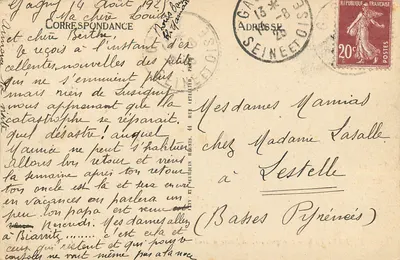 Gagny, 14 Août 1925
Ma chère Louise
CORRESPONDANCE
et chère Berthe,
Je reçois à l'instant d'ex
cellentes nouvelles des petites
qui ne s'ennuient plus
mais rien de Lusignan
vous apprenant que la
catastrophe se réparait.
quel désastre! auquel
Mamie ne peut s'habituer
allons bon retour et viens
la semaine après ton retour
ton oncle est là et sera encore
en vacances on parlera un
peu. ton papa est venu
Mesdames allez
à Biarritz........ c'est cela et
ceux qui
ne vait même pas à la noce
ADRESSE
GA
13 * 8
25
SEINE ET OISE
RÉPUBLIQUE FRANÇAISE
20c
POSTES
Mesdames Mamias
chez Madame Lasalle
à Lestelle
(Basses Pyrénées)